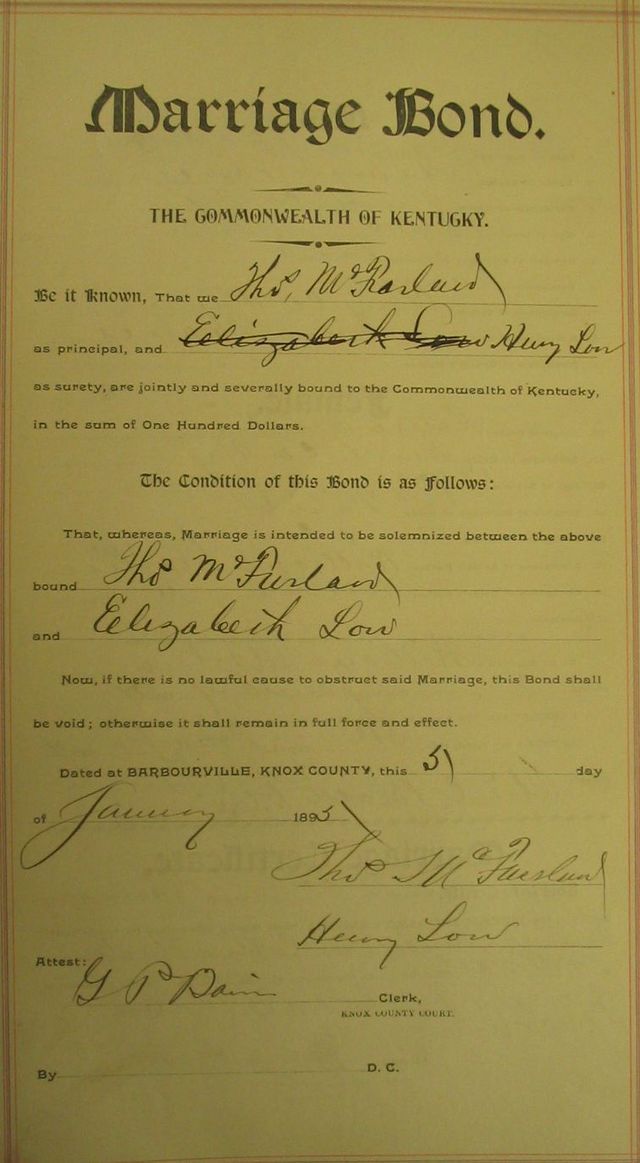 Marriage Bond.
THE COMMONWEALTH OF KENTUCKY.
Be it Known, That we Thos, McFarland
as principal, and Elizabeth Low Henry Low
as surety, are jointly and severally bound to the Commonwealth of Kentucky,
in the sum of One Hundred Dollars.
The Condition of this Bond is as Follows:
That, whereas, Marriage is intended to be solemnized between the above
bound Thos McFarland
and Elizabeth Low
Now, if there is no lawful cause to obstruct said Marriage, this Bond shall
be void; otherwise it shall remain in full force and effect.
Dated at BARBOURVILLE, KNOX COUNTY, this 5 day
of January 1895
Thos McFarland
Henry Low
Attest:
G P Bain Clerk,
KNOX COUNTY COURT.
By D. C.